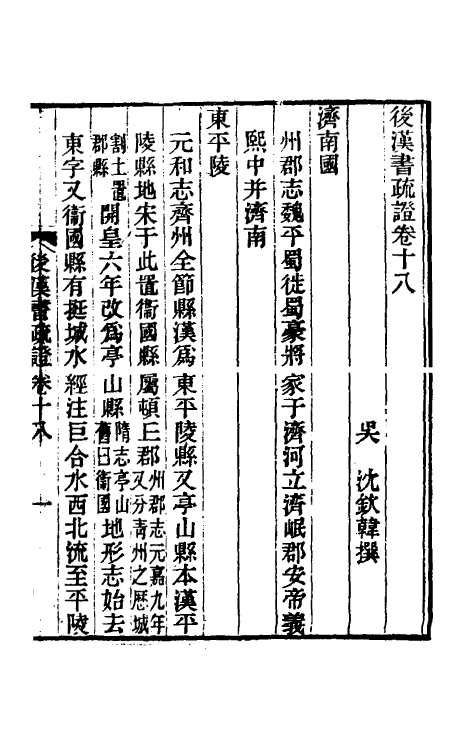 後漢書疏證卷十八
吳　沈欽韓撰
濟南國
州郡志魏平蜀徙蜀豪將家于濟河立濟岷郡安帝義
熙中并濟南
東平陵
元和志齊州全節縣漢爲東平陵縣又亭山縣本漢平
陵縣地宋于此置衞國縣屬頓丘郡州郡志元嘉九年又分靑州之歷城
割土置郡縣開皇六年改爲亭山縣隋志亭山舊曰衞國地形志始去
東字又衞國縣有挺城水經注巨合水西北流至平陵
後漢書疏證　卷十八　一